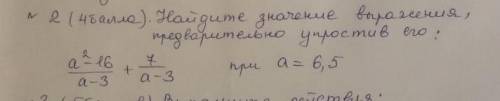 № 2 (4 балла). Найдите значение выражения,
предварительно упростив его:
a²-16/a-3 + 7/a-3 при a = 6,5